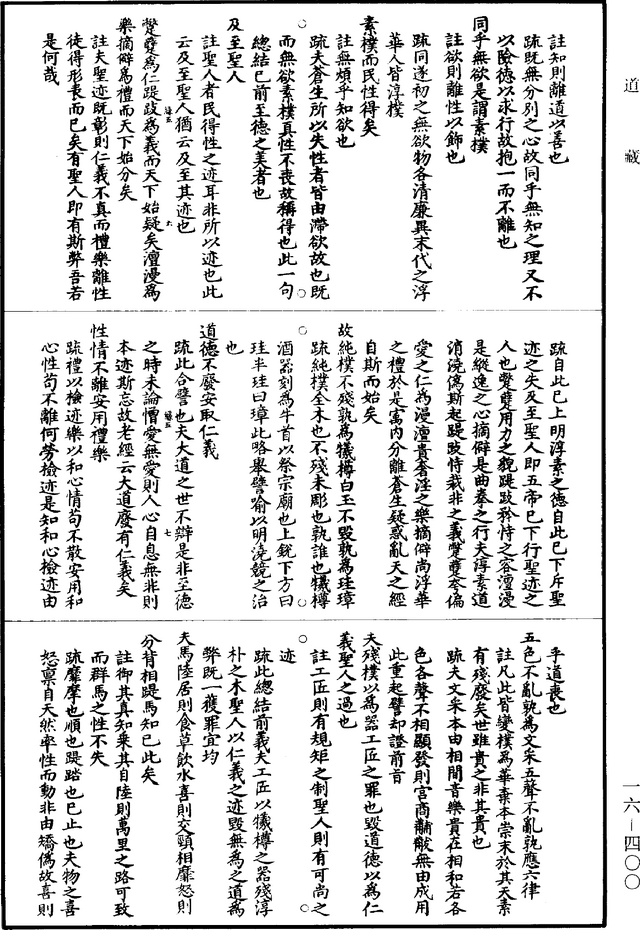 道藏
註知則離道以善也
疏既無分別之心故同乎無知之理又不
以險德以求行故抱一而不離也
同乎無欲是謂素樸
註欲則離性以飾也
疏同遂初之無欲物各清廉異末代之浮
華人皆淳樸
素樸而民性得矣
註無煩乎知欲也
疏夫蒼生所以失性者皆由滯欲故也既
而無欲素樸真性不喪故稱得也此一句
總結已前至德之美者也
及至聖人
註聖人者民得性之迹耳非所以迹也此
云及至聖人猶云及至其迹也
蹩躠為仁踶跂為義而天下始疑矣澶漫為
樂摘僻為禮而天下始分矣
註夫聖迹既彰則仁義不真而禮樂離性
徒得形表而已矣有聖人即有斯弊吾若
是何哉
疏自此已上明淳素之德自此已下斥聖
迹之失及至聖人即五帝已下行聖迹之
人也蹩躠用力之貌踶跂矜恃之容澶漫
是縱逸之心摘僻是曲拳之行夫淳素道
消澆偽斯起踶跂恃裁非之義蹩躠夸偏
愛之仁為漫澶貴奢淫之樂摘僻尚浮華
之禮於是寓內分離蒼生疑惑亂天之經
自斯而始矣
故純樸不殘孰為犧樽白玉不毀孰為珪璋
疏純樸全木也不殘未彫也孰誰也犧樽
酒器刻為牛首以祭宗廟也上銳下方曰
珪半珪曰璋此略舉譬喻以明澆競之治
也
道德不廢安取仁義
疏此合譬也夫大道之世不辯是非至德
之時未論憎愛無愛則人心自息無非則
本迹斯忘故老經云大道廢有仁義矣
性情不離安用禮樂
疏禮以檢迹樂以和心情苟不散安用和
心性苟不離何勞檢迹是知和心檢迹由
乎道喪也
五色不亂孰為文采五聲不亂孰應六律
註凡此皆變樸為華棄本崇末於其天素
有殘廢矣世雖貴之非其貴也
疏夫文采本由相間音樂貴在相和若各
色各聲不相顯發則宮商黼黻無由成用
此重起譬却證前旨
夫殘樸以為器工匠之罪也毀道德以為仁
義聖人之過也
註工匠則有規矩之制聖人則有可尚之
迹
疏此總結前義夫工匠以犧樽之器殘淳
朴之木聖人以仁義之迹毀無為之道為
弊既一獲罪宜均
夫馬陸居則食草飲水喜則交頸相靡怒則
分背相踶馬知已此矣
註御其真知乘其自陸則萬里之路可致
而群馬之性不失
疏靡摩也順也踶踏也已止也夫物之喜
怒稟自天然率性而動非由矯偽故喜則
一六－四〇〇